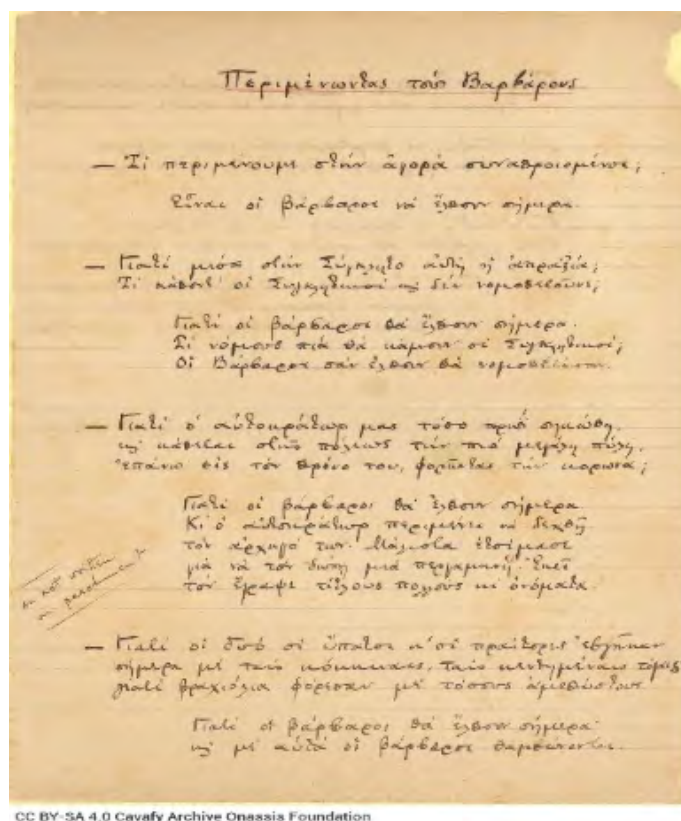 Περιμένοντας τοὺς Βαρβάρους
— Τί περιμένουμε στὴν ἀγορὰ συναθροισμένοι;
Εἶναι οἱ βάρβαροι νὰ ἔλθουν σήμερα.
— Γιατὶ μέσα στὴν Σύγκλητο αὐτὴ ἡ ἀπραξία;
Τί κάθοντ' οἱ Συγκλητικοὶ κὶ δὲν νομοθετοῦνε;
Γιατὶ οἱ βάρβαροι θὰ ἔλθουν σήμερα.
Τί νόμους πιὰ θὰ κάμουν οἱ Συγκλητικοί;
Οἱ Βάρβαροι σὰν ἔλθουν θὰ νομοθετήσουν.
— Γιατὶ ὁ αὐτοκράτωρ μας τόσο πρωῒ σηκώθη,
κὶ κάθεται στῆς πόλεως τὴν πιὸ μεγάλη πύλη,
ἐπάνω εἰς τὸν θρόνο του, φορῶντας τὴν κορώνα;
Γιατὶ οἱ βάρβαροι θὰ ἔλθουν σήμερα
Κι ὁ αὐτοκράτωρ περιμένει νὰ δεχθῇ
τὸν ἀρχηγό των. Μάλιστα ἑτοίμασε
γιὰ νὰ τὸν δώσῃ μιὰ περγαμηνή. Ἐκεῖ
τὸν ἔγραψε τίτλους πολλοὺς κι ὀνόματα.
not written
parchment
— Γιατὶ οἱ δυό οἱ ὕπατοι κ' οἱ πραίτορες ἐβγῆκαν
σήμερα μὲ ταὶς κόκκιναις, ταὶς κεντημέναις τόγες
γιατὶ βραχιόλια φόρεσαν μὲ τόσους ἀμεθύστους
Γιατὶ οἱ βάρβαροι θὰ ἔλθουν σήμερα
κὶ μὲ αὐτὰ οἱ βάρβαροι θαμβώνονται.
CC BY-SA 4.0 Cavafy Archive Onassis Foundation